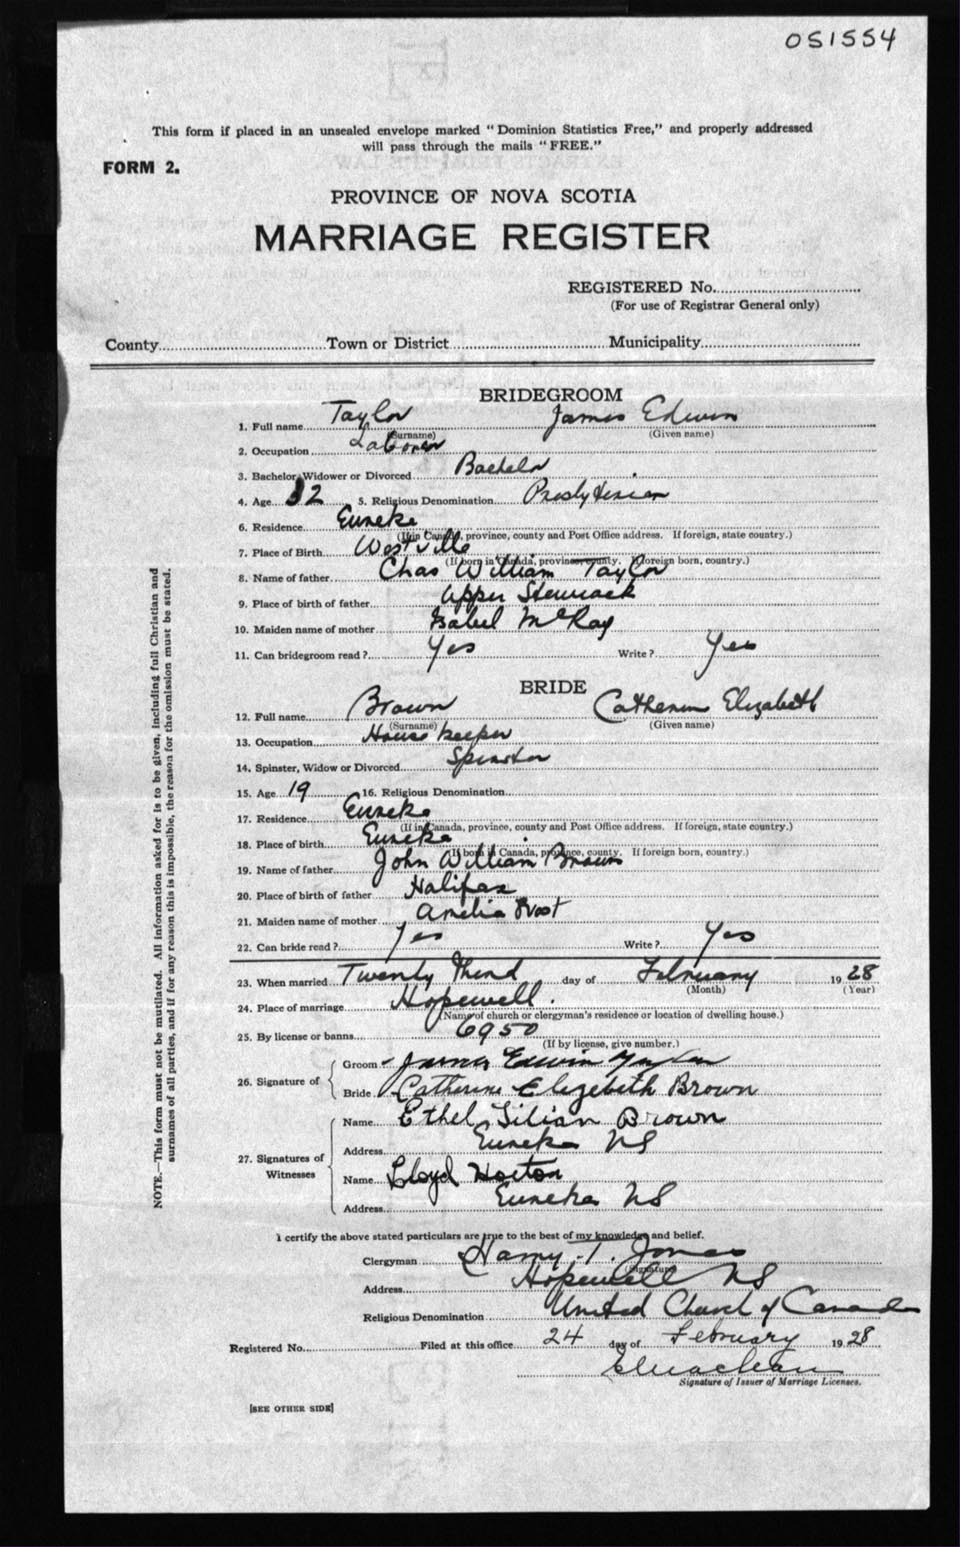 051554
This form if placed in an unsealed envelope marked "Dominion Statistics Free," and properly addressed
will pass through the mails "FREE."
FORM 2.
PROVINCE OF NOVA SCOTIA
MARRIAGE REGISTER
REGISTERED No.
(For use of Registrar General only)
County Town or District Municipality
BRIDEGROOM
1. Full name Taylor James Edwin
(Surname) (Given name)
2. Occupation Laborer
3. Bachelor, Widower or Divorced Bachelor
4. Age 32 5. Religious Denomination Presbyterian
6. Residence Eureka
(If in Canada, province, county and Post Office address. If foreign, state country.)
7. Place of Birth Westville
(If born in Canada, province, county. If foreign born, country.)
8. Name of father Chas William Taylor
9. Place of birth of father Upper Stewiack
10. Maiden name of mother Isabel McRay
11. Can bridegroom read? Yes Write? Yes
BRIDE
12. Full name Brown Catherine Elizabeth
(Surname) (Given name)
13. Occupation House keeper
14. Spinster, Widow or Divorced Spinster
15. Age 19 16. Religious Denomination
17. Residence Eureka
(If in Canada, province, county and Post Office address. If foreign, state country.)
18. Place of birth Eureka
(If born in Canada, province, county. If foreign born, country.)
19. Name of father John William Brown
20. Place of birth of father Halifax
21. Maiden name of mother Amelia
22. Can bride read? Yes Write? Yes
23. When married Twenty Third day of February 1928
(Month) (Year)
24. Place of marriage Hopewell.
(Name of church or clergyman's residence or location of dwelling house.)
25. By license or banns 6950
(If by license, give number.)
26. Signature of Groom James Edwin Taylor
Bride Catherine Elizebeth Brown
27. Signatures of Witnesses Name Ethel Lilian Brown
Address Eureka NS
Name Lloyd Horton
Address Eureka NS
I certify the above stated particulars are true to the best of my knowledge and belief.
Clergyman Harry T. Jones
(Signature)
Address Hopewell NS
Religious Denomination United Church of Canada
Registered No. Filed at this office 24 day of February 1928
Signature of Issuer of Marriage Licenses.
[SEE OTHER SIDE]
NOTE.—This form must not be mutilated. All information asked for is to be given, including full Christian and
surnames of all parties, and if for any reason this is impossible, the reason for the omission must be stated.